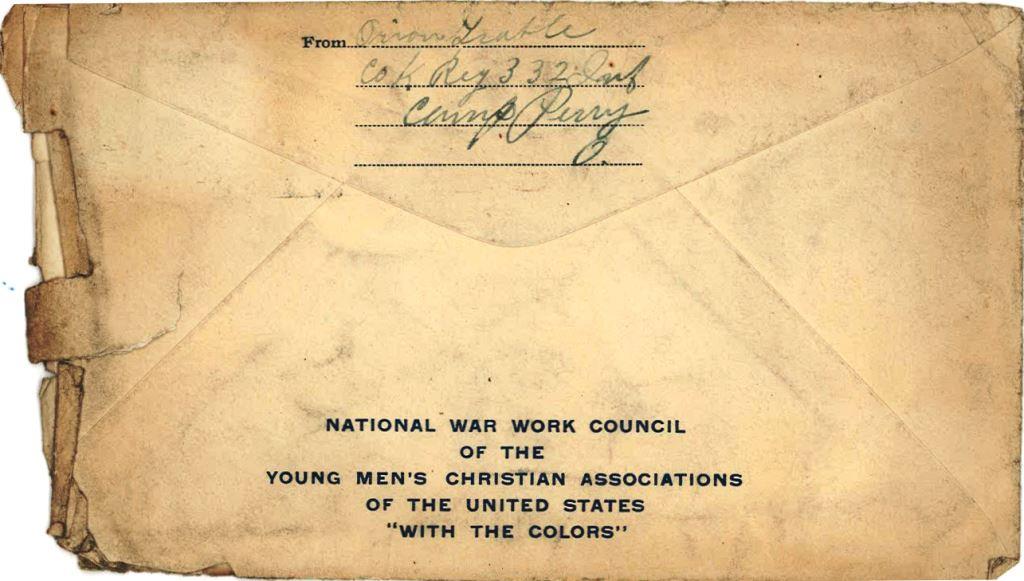 From Orion Trable
Co K Reg 332 Inf
Camp Perry
O.
NATIONAL WAR WORK COUNCIL
OF THE
YOUNG MEN'S CHRISTIAN ASSOCIATIONS
OF THE UNITED STATES
"WITH THE COLORS"